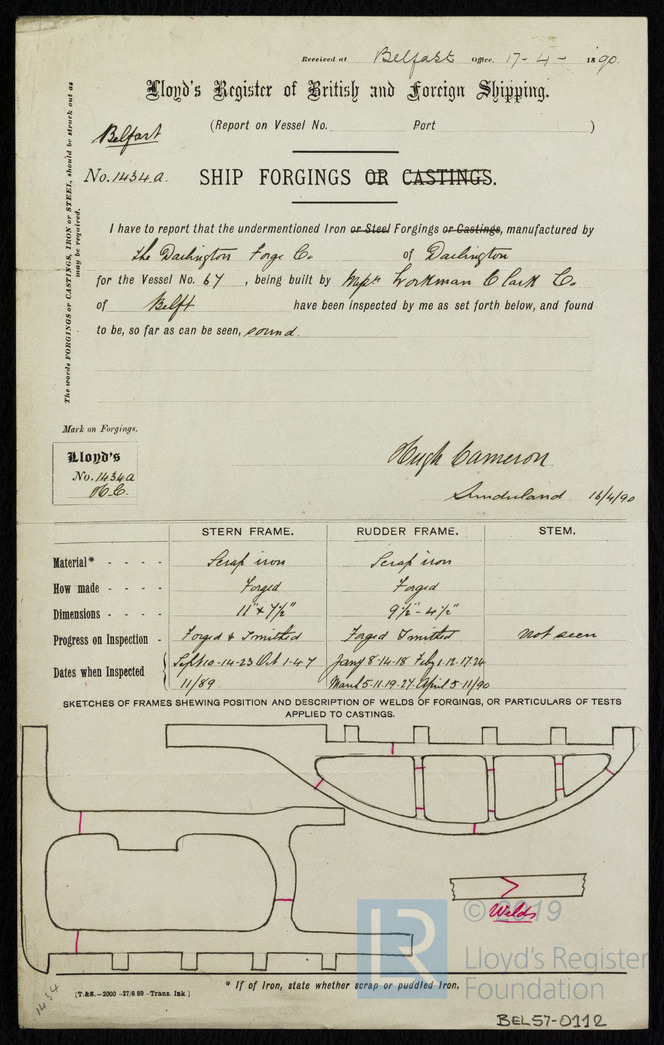 Received at Belfast Office, 17-4-1890.
Lloyd's Register of British and Foreign Shipping.
Belfast
(Report on Vessel No. Port )
No. 1434a. SHIP FORGINGS OR CASTINGS.
The words FORGINGS or CASTINGS, IRON or STEEL, should be struck out as
may be required.
I have to report that the undermentioned Iron or Steel Forgings or Castings, manufactured by
The Darlington Forge Co. of Darlington
for the Vessel No. 67, being built by Messrs Workman Clark Co.
of Belft have been inspected by me as set forth below, and found
to be, so far as can be seen, sound.
Mark on Forgings.
Lloyd's
No. 1434a
H.C.
Hugh Cameron
Sunderland 16/4/90
STERN FRAME. RUDDER FRAME. STEM.
Material* - - - - Scrap iron Scrap iron
How made - - - - Forged Forged
Dimensions - - - - 11" x 7½" 9½" - 4½"
Progress on Inspection - Forged & Smithed Forged Smithed not seen
Dates when Inspected Sept 10-14-23 Oct 1-4-7 Jany 8-14-18 Feby 1-12-17-24
11/89 March 5-11-19-27 April 5-11/90
SKETCHES OF FRAMES SHEWING POSITION AND DESCRIPTION OF WELDS OF FORGINGS, OR PARTICULARS OF TESTS
APPLIED TO CASTINGS.
Welds
© 2019
LR Lloyd's Register
Foundation
* If of Iron, state whether scrap or puddled Iron.
[T.&S.—2000—27/8/89—Trans. Ink.]
1434
BEL57-0112